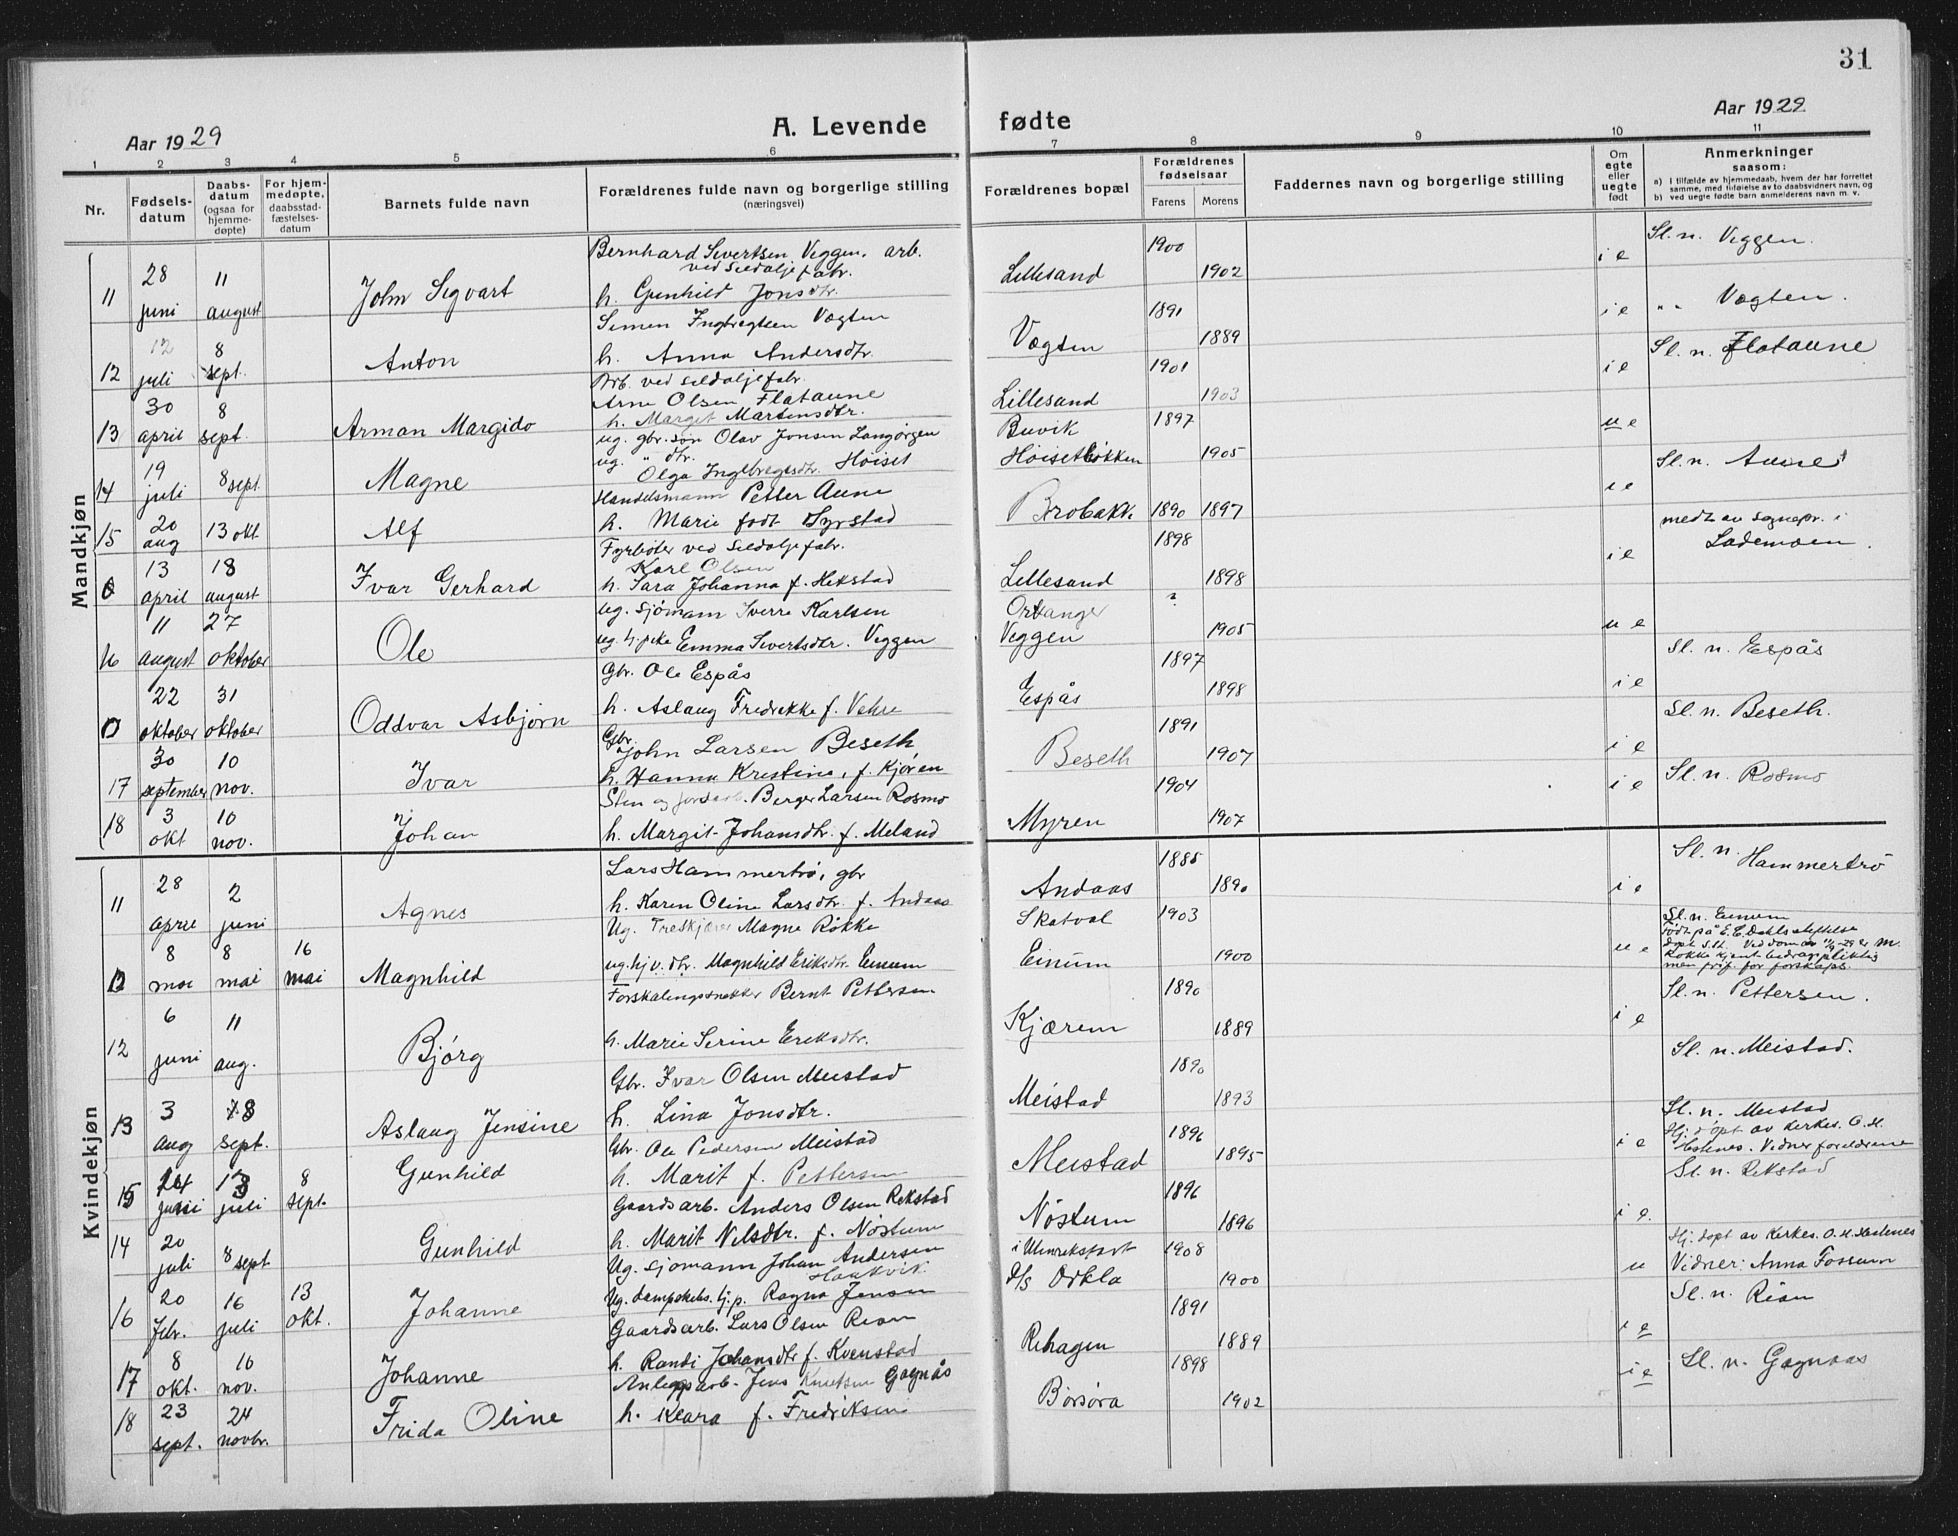 31
Aar 1929
A. Levende fødte
Aar 1929
1 2 3 4 5 6 7 8 9 10 11
Nr.
Fødsels-
datum
Daabs-
datum
(ogsaa for
hjemme-
døpte)
For hjem-
medøpte,
daabsstad-
fæstelses-
datum
Barnets fulde navn
Forældrenes fulde navn og borgerlige stilling
(næringsvei)
Forældrenes bopæl
Forældrenes
fødselsaar
Farens Morens
Faddernes navn og borgerlige stilling
Om
egte
eller
uegte
født
Anmerkninger
saasom:
a) i tilfælde av hjemmedaab, hvem der har forrettet
samme, med tilføielse av to daabsvidners navn, og
b) ved uegte fødte barn anmelderens navn m. v.
Mandkjøn
Bernhard Sivertsen Veggen, arb. 1900 i e Sl. n. Veggen.
ved sildoljefabr.
11 28 juni 11 august John Sigvart h. Gunhild Jonsdtr. Lillesand 1902
Simen Ingbregtsen Vægten 1891 i e " " Vægten.
12 12 juli 8 sept. Anton h. Anna Andersdtr. Vægten 1889
Arb. ved sildoljefabr. 1901 i e Sl. n. Flataune
Arne Olsen Flataune
13 30 april 8 sept. Arman Margido h. Marget Martensdtr. Lillesand 1903
ug. gbr. søn Olav Jonsen Langørgen Buvik 1897 u e
ug. " dtr.
14 19 juli 8 sept Magne Olga Ingebregtsdtr. Høiset Høisetbakken 1905
Handelsmann Petter Aune 1890 i e Sl. n. Aune
15 20 aug 13 okt Alf h. Marie født Syrstad Brobakk 1897
Fyrbøter ved Sildoljefabr. 1898 i e medt. av sognepr. i
Karl Olsen Lademoen.
13 april 18 august Ivar Gerhard h. Sara Johanna f. Hekstad Lillesand 1898
ug. sjømann Sverre Karlsen ? u e
16 11 august 27 oktober Ole ug. tj. pike Emma Sivertsdtr. Veggen Veggen 1905
Gbr. Ole Espås 1897 i e Sl. n. Espås
22 oktober 31 oktober Oddvar Asbjørn h. Aslaug Fredrikke f. Vehre Espås 1898
Gbr. John Larsen Beseth 1891 i e Sl. n. Beseth.
17 30 september 10 nov. Ivar h. Hanna Kristine, f. Kjøren Beseth 1907
Sten og jordarb. Berger Larsen Rosmo 1904 i e Sl. n. Rosmo
18 3 okt 10 nov. Johan h. Margit Johansdtr. f. Meland Myren 1907
Kvindekjøn
Lars Hammertrø, gbr 1885 i e Sl. n. Hammertrø
11 28 april 2 juni Agnes h. Karen Oline Larsdtr. f. Andaas Andaas 1890
Ug. Treskjærer Magne Røkke Skatval 1903 u e Sl. n. Einum
født på E. C. Dahls stiftelse
døpt s. st. Ved dom av 11/9-29 er M.
Røkke kjent bidragspliktig
men frif. for farskaps.
8 mai 8 mai 16 mai Magnhild ug. hj. v. dtr. Magnhild Eriksdtr. Einum Einum 1900
Forskalingssnekker Bernt Pettersen 1890 i e Sl. n. Pettersen.
12 6 juni 11 aug. Bjørg h. Marie Serine Eriksdtr. Kjærem 1889
Gbr. Ivar Olsen Meistad 1890 Sl. n. Meistad.
13 3 aug 8 sept. Aslaug Jensine h. Lina Jonsdtr. Meistad 1893
Gbr. Ole Pedersen Meistad 1896 i e Sl. n. Meistad
Hj. døpt av Kirkes. O. H.
Hestnes. Vidner foreldrene
15 juli 8 sept. Gunhild h. Marit f. Pettersen Meistad 1895
Gaardsarb. Anders Olsen Rekstad 1896 i e. Sl. n. Rekstad
14 20 juli 8 sept Gunhild h. Marit Nilsdtr. f. Nøstum Nøstum 1896
Ug. sjømann Johan Andersen 1908 u Hj. døpt av Kirkes. O. H. Hestnes
Haakvik
16 20 febr. 16 juli 13 okt. Johanne Ug. dampskibs. tj. p. Ragna Jensen D/S Orkla 1900 Vidner: Anna Fossum
Gaardsarb. Lars Olsen Rian 1891 i e Sl. n. Rian
17 8 okt. 10 nov. Johanne h. Randi Johansdtr f. Kvenstad Rehagen 1889
Anleggsarb. Jens Knutsen Gagnås 1898 i e Sl. n. Gagnaas
18 23 sept. 24 novbr. Frida Oline h. Klara f. Fredriksen Børsøra 1902